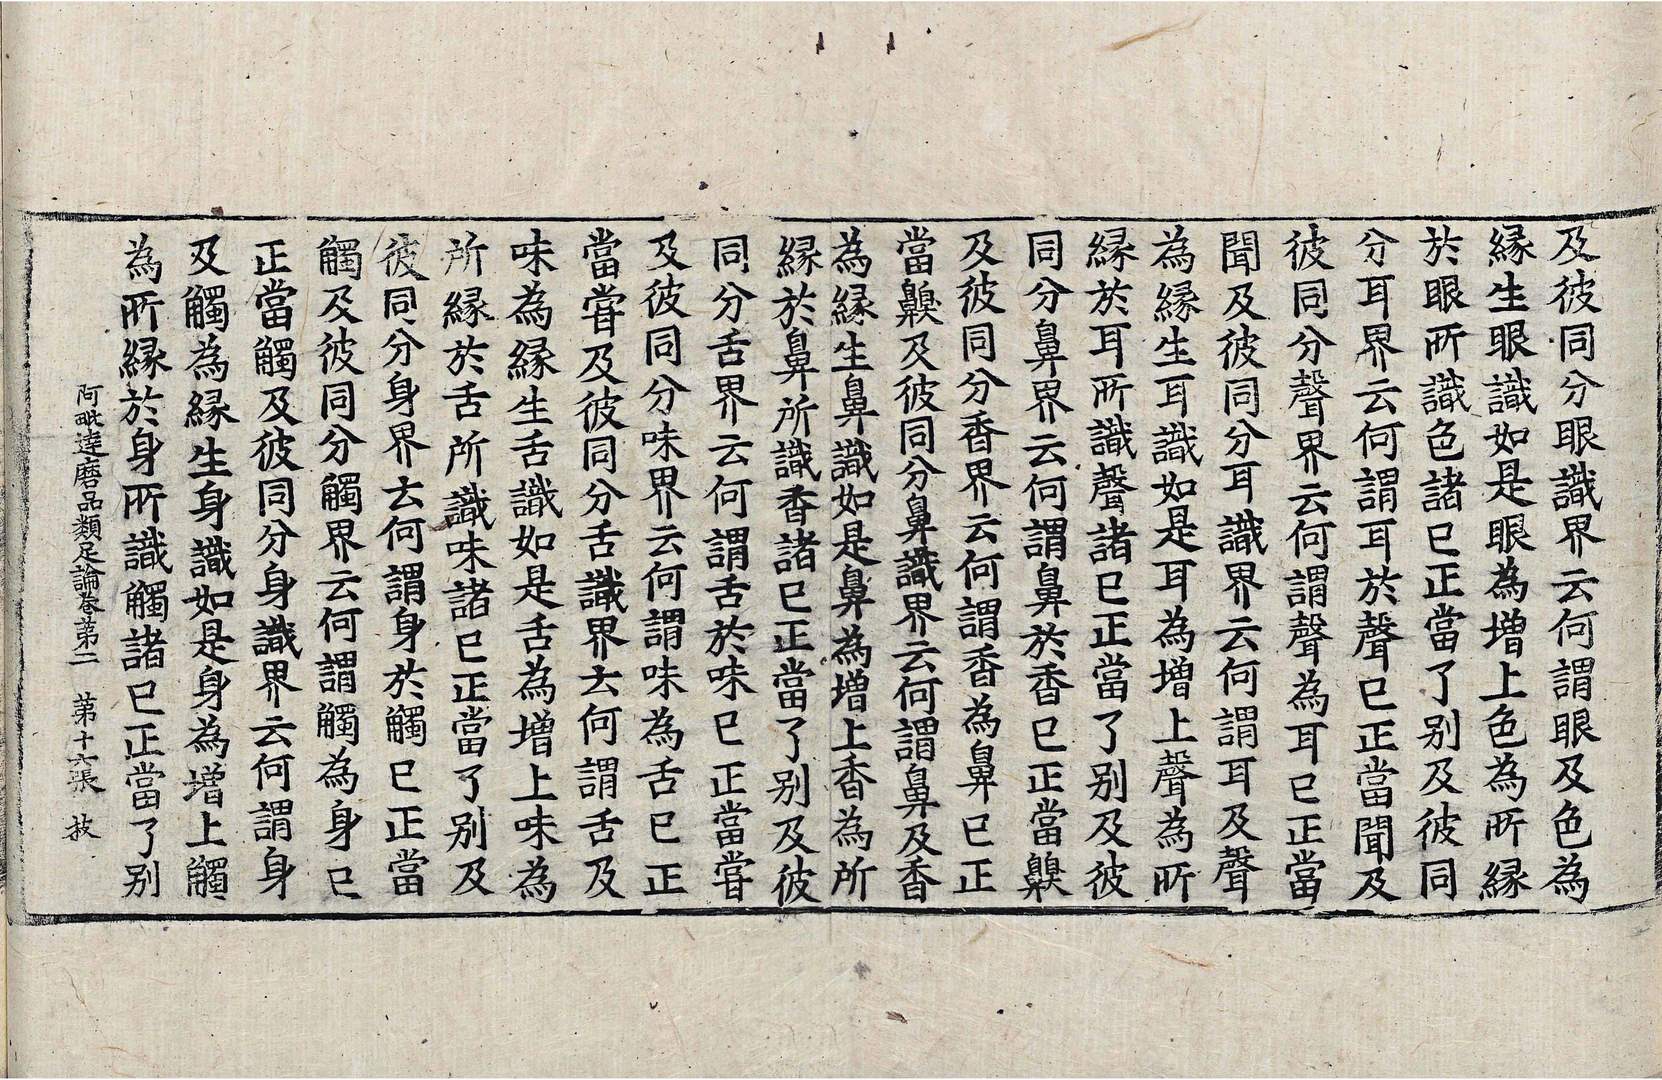 及彼同分眼識界云何謂眼及色為
緣生眼識如是眼為增上色為所緣
於眼所識色諸已正當了別及彼同
分耳界云何謂耳於聲已正當聞及
彼同分聲界云何謂聲為耳已正當
聞及彼同分耳識界云何謂耳及聲
為緣生耳識如是耳為增上聲為所
緣於耳所識聲諸已正當了別及彼
同分鼻界云何謂鼻於香已正當齅
及彼同分香界云何謂香為鼻已正
當齅及彼同分鼻識界云何謂鼻及香
為緣生鼻識如是鼻為增上香為所
緣於鼻所識香諸已正當了別及彼
同分舌界云何謂舌於味已正當嘗
及彼同分味界云何謂味為舌已正
當嘗及彼同分舌識界云何謂舌及
味為緣生舌識如是舌為增上味為
所緣於舌所識味諸已正當了別及
彼同分身界云何謂身於觸已正當
觸及彼同分觸界云何謂觸為身已
正當觸及彼同分身識界云何謂身
及觸為緣生身識如是身為增上觸
為所緣於身所識觸諸已正當了別
阿毗達磨品類足論卷第二 第十六張 枝